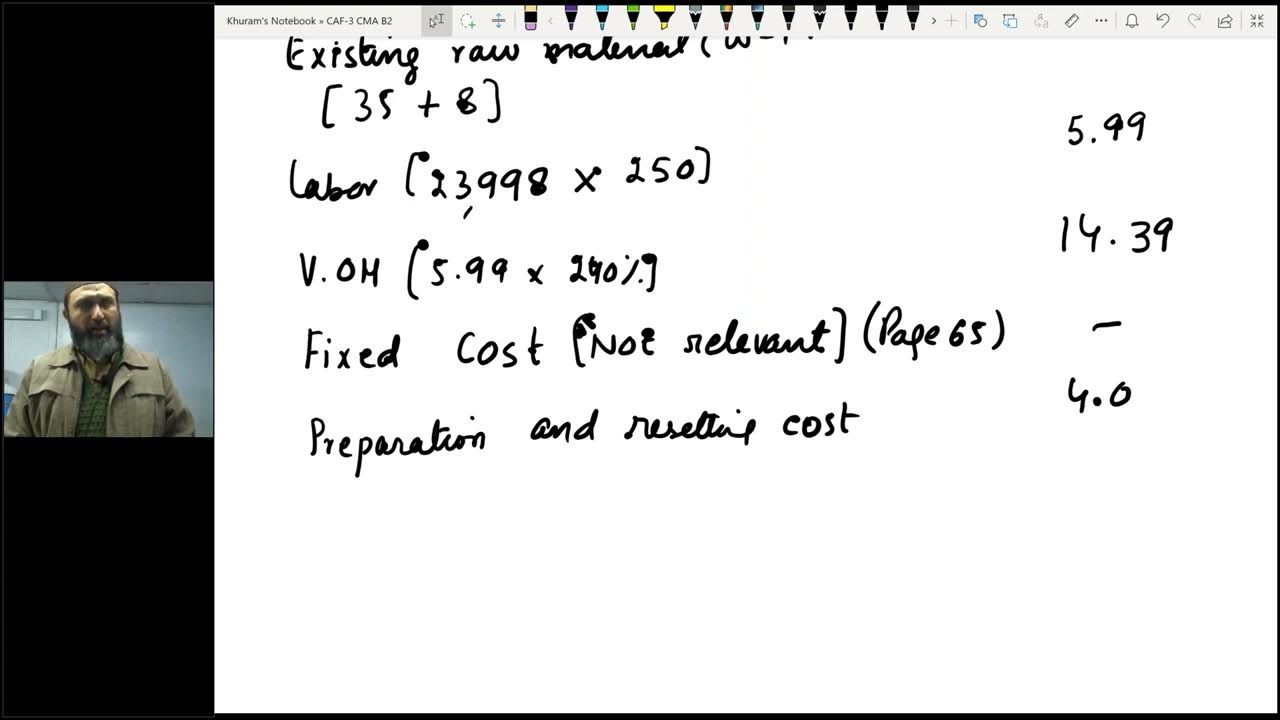 Khuram's Notebook » CAF-3 CMA B2
Existing raw material (W-1
[35 + 8]
5.99
Labor [23,998 × 250]
14.39
V.OH [5.99 × 240%]
Fixed Cost [Not relevant] (Page 65) -
4.0
Preparation and resetting cost